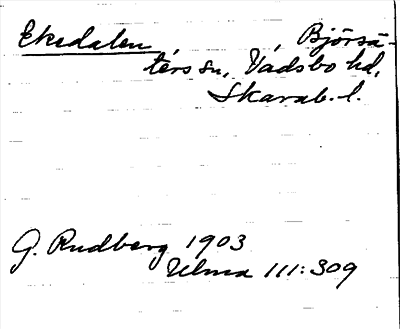 Ekedalen, Björsä-
ters sn, Vadsbo hd,
Skarab. l.
G. Rudberg 1903
Ulma 111:309